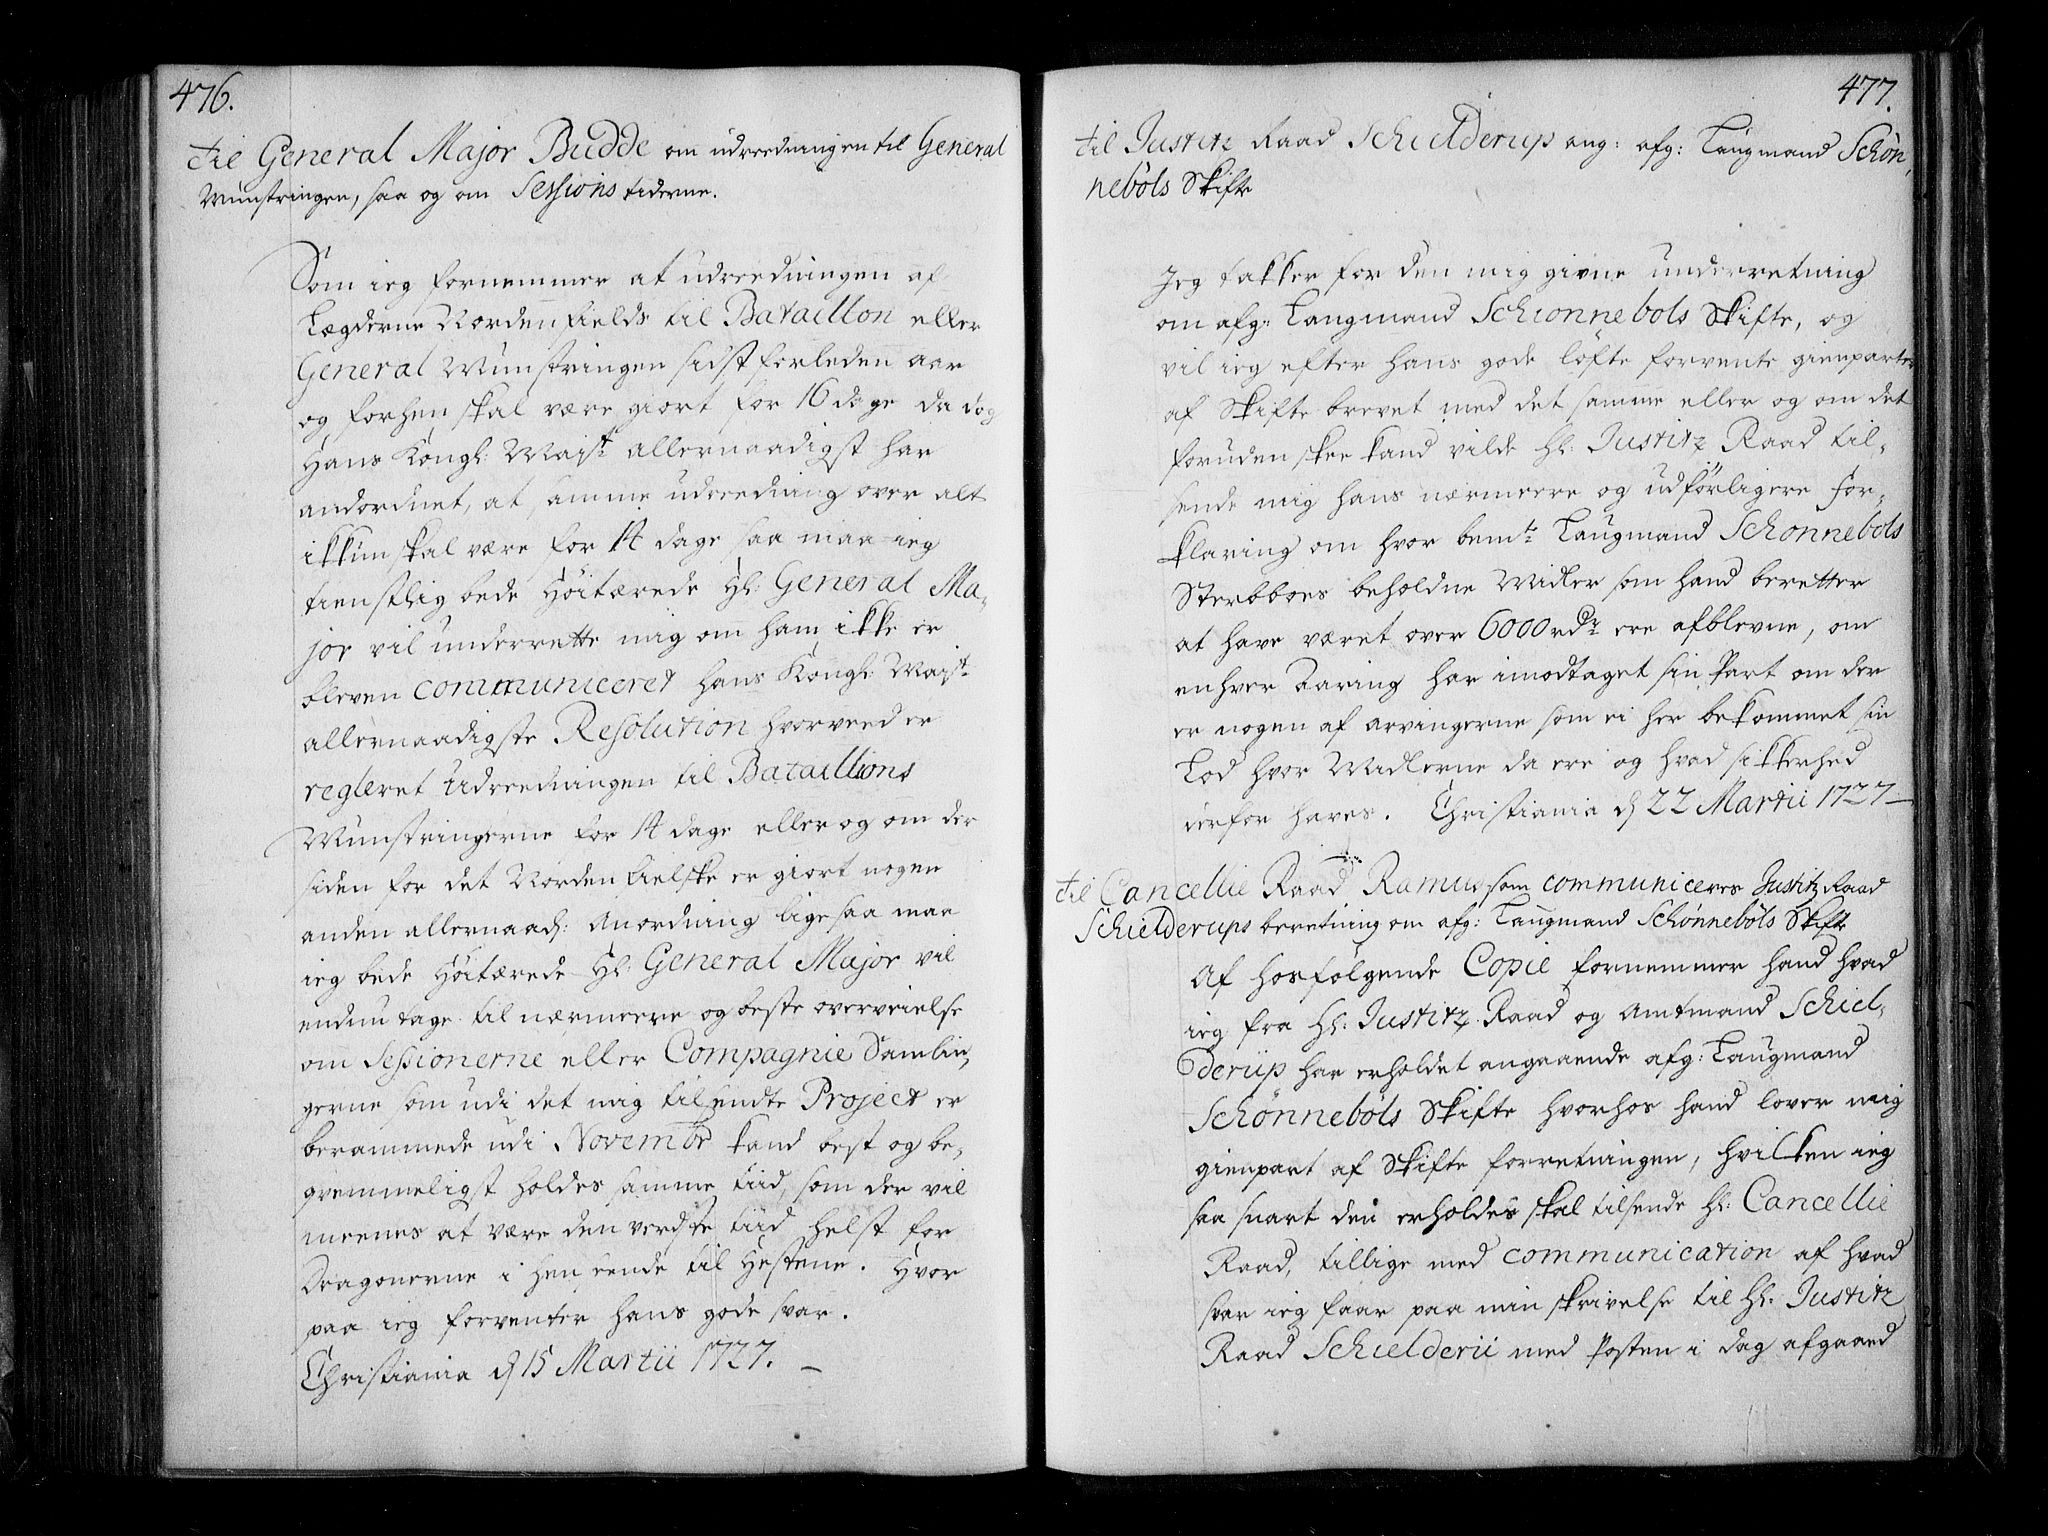 476.
til General Major Budde om udreedningen til General
Mønstringen, saa og om Sessions tiderne.
Som ieg fornemmer at udreedningen af
Lægderne Nordenfields til Bataillon eller
General Mønstringen sidst forleden aar
og forhen skal være giort for 16 dage da dog
Hans Kongl: Maist: allernaadigst har
andordnet, at samme udreedning over alt
ikkun skal være for 14 dage saa maa ieg
tienstlig bede Høitærede Hl: General Ma-
jor vil underrette mig om ham ikke er
bleven communiceret hans Kongl: Maist:
allernaadigste Resolution hvorved er
regleret Udreedningen til Bataillions
Mønstringerne for 14 dage eller og om der
siden for det Nordenfielske er giort nogen
anden allernaad: Anordning ligesaa maa
ieg bede Høitærede Hl: General Major vil
endnu tage til nærmeere og beste overveielse
om Sessionerne eller Compagnie Samlin-
gerne som udi det mig tilsendte Project er
berammede udi Novembr kand best og be-
qvemmeligst holdes samme tiid, som der vil
meenes at være den verdste tiid helst for
Dragonerne i henseende til Hestene. Hvor
paa ieg forventer hans gode svar.
Christiania d 15 Martii 1727. —
477.
til Justitz Raad Schielderup ang: afg: Laugmand Schøn-
nebøls Skifte
Jeg takker for den mig givne underretning
om afg: Laugmand Schiønnebols Skifte, og
vil ieg efter hans gode løfte forvente gienparter
af Skifte brevet med det samme eller og om det
foruden skee kand vilde hl: Justitz Raad til-
sende mig hans nærmeere og udførligere for-
klaring om hvor bemte Laugmand Schønnebols
Sterbboes beholdne Midler som hand beretter
at have været over 6000 rdr ere afblevne, om
enhver Arving har imodtaget sin Part om der
er nogen af arvingerne som ei her bekommet sin
Lod hvor Midlerne da ere og hvad sikkerhed
derfor haves. Christiania d 22 Martii 1727 —
til Cancellie Raad Ramus som communiceres Justitz Raad
Schielderups beretning om afg: Laugmand Schønnebøls Skifte
Af hosfølgende Copie fornemmer hand hvad
ieg fra hl: Justitz Raad og Amtmand Schiel-
derup har erholdet angaaende afg: Laugmand
Schønnebøls Skifte hvorhos hand lover mig
gienpart af Skifte forretningen, hvilken ieg
saa snart den erholdes skal tilsende hl: Cancellie
Raad, tillige med communication af hvad
svar ieg faar paa min skrivelse til hl: Justitz
Raad Schielderu med Posten i dag afgaaed